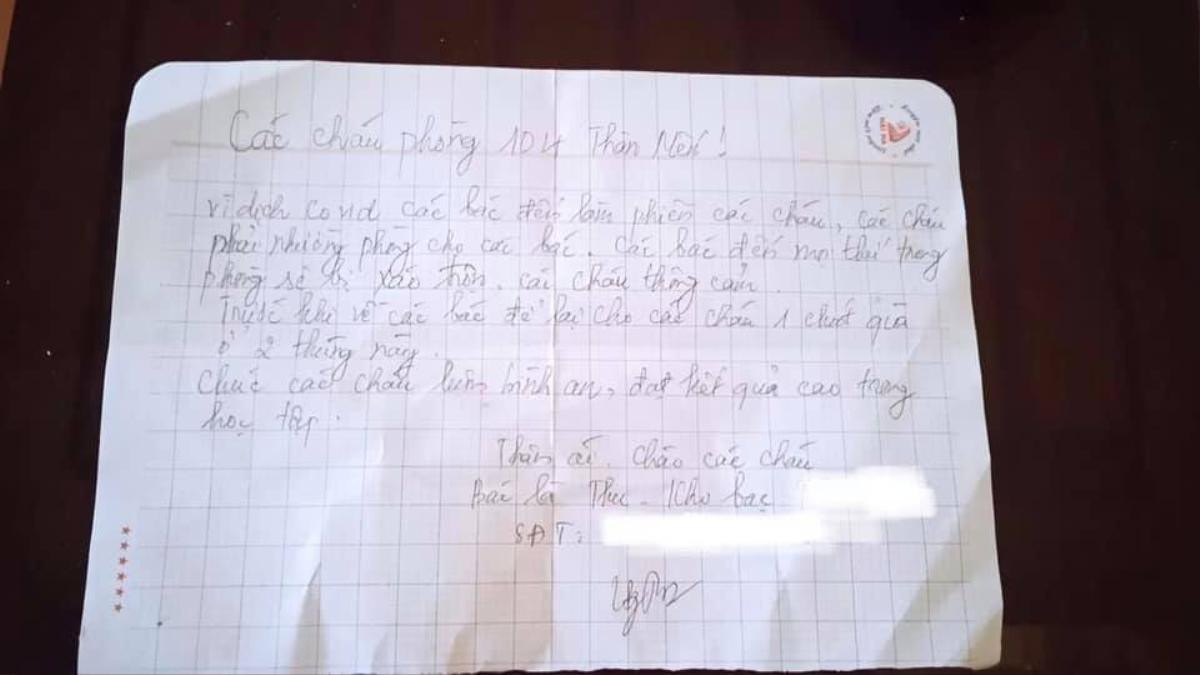 Các cháu phòng 104 Thân Mến!
Vì dịch covid các bác đến làm phiền các cháu, các cháu
phải nhường phòng cho các bác. Các bác đến mọi thứ trong
phòng sẽ bị xáo trộn. các cháu thông cảm.
Trước khi về các bác để lại cho các cháu 1 chút quà
ở 2 thùng này.
Chúc các cháu luôn bình an, đạt kết quả cao trong
học tập.
Thân ái. Chào các cháu
Bác là Thu - Kho bạc
SĐT: